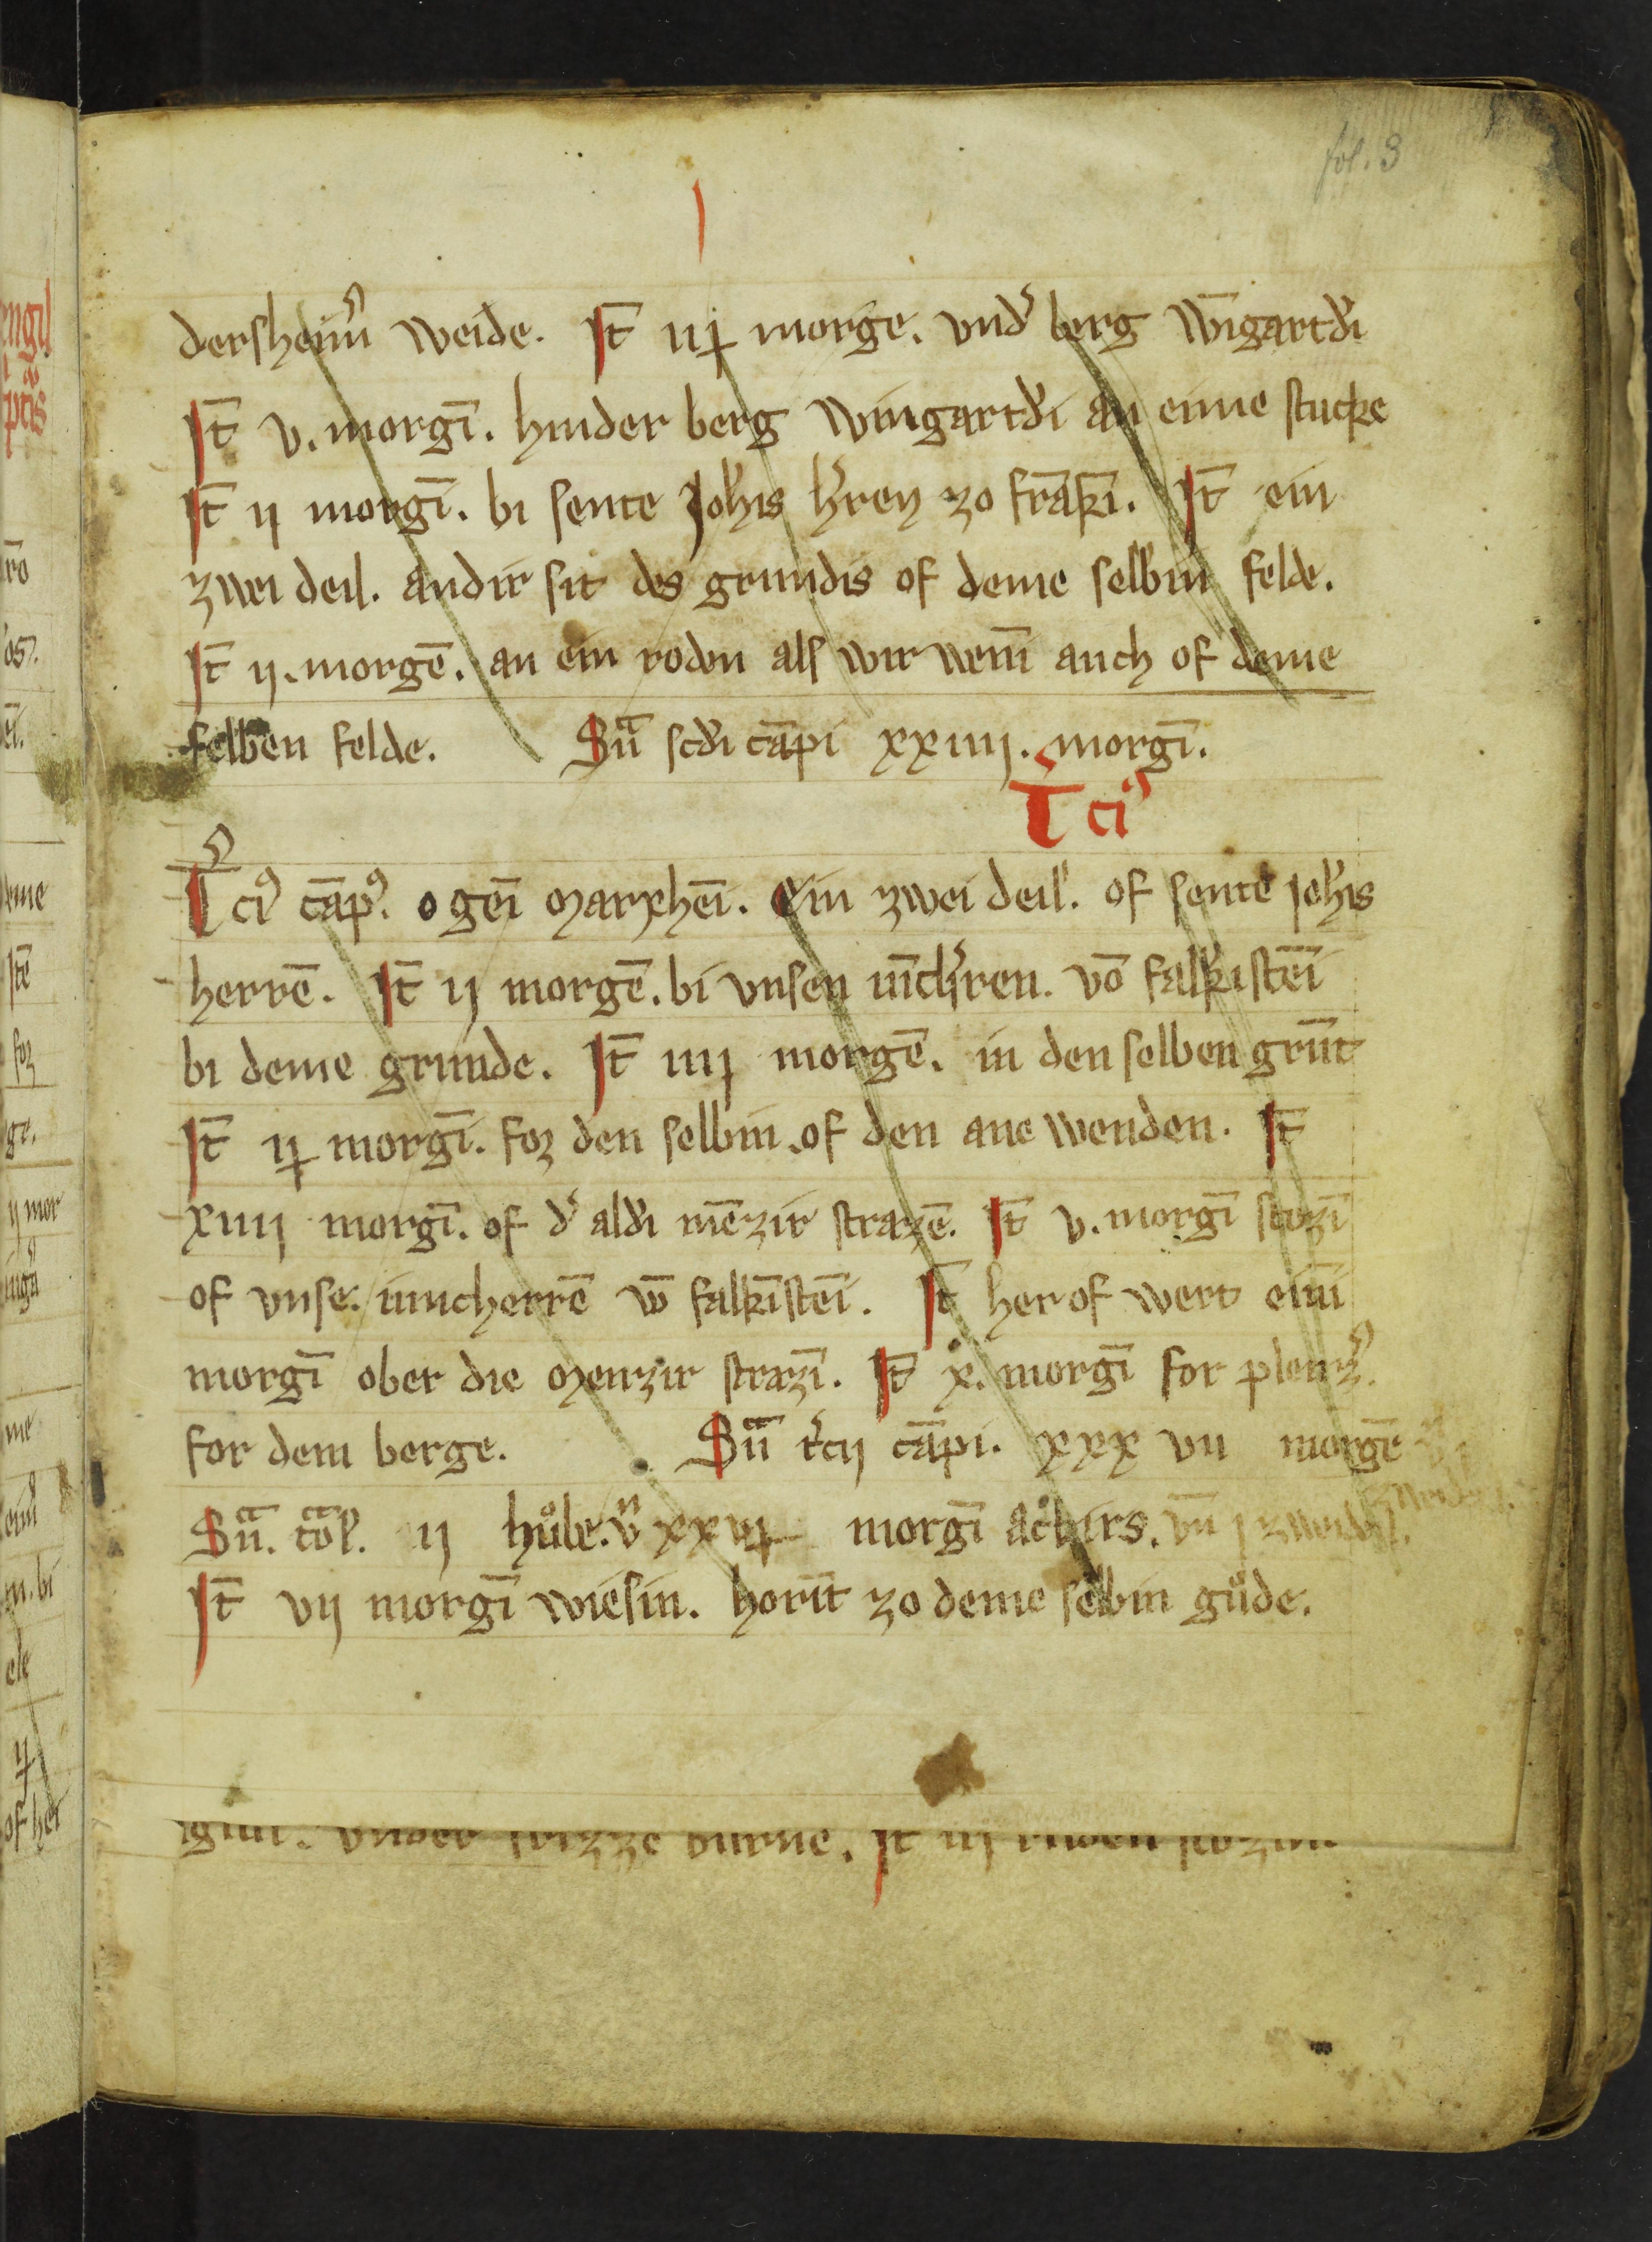 fol. 3
dersheim̄ weide. It̄ iiȷ morge. vnd' berg wīgartd'i
It̄ v. morgī. hinder berg wingartd'i an eime stucke
It̄ ij morgī. bi sente Joh'is h'ren zo frākī. It̄ ein
zwei deil. andir sit des grundis of deme selbin felde.
It̄ ij. morgē. an ein rodin als wir wenī auch of deme
selben felde. Sūa scd'i cāpi xxiiij. morgī.
T'ci'
T'ci' cāp'. o gēī Marxhēī. Ein zwei deil. of sente joh'is
herrē. It̄ ij morgē. bi vnsen iūch'ren. vō falkistēī
bi deme grunde. It̄ iiij morgē. in den selben grūt
It̄ ij morgī. foz den selbin of den ane wenden. It̄
xiiij morgī. of d' ald'i mēzir strazē. It̄ v. morgī stozī
of vnse. iuncherrē vō falkīstēī. It̄ her of wert eini
morgī ober die Menzir strazī. It̄ x. morgī for plenz'.
for dem berge. Sūa t'cij cāpi. xxx vii morgē
Sūa. toāl. ij hůbe. vn̄ xxvij morgī ackirs. vn̄ j zweideil.
It̄ vij morgī wiesin. horīt zo deme selbin gůde.